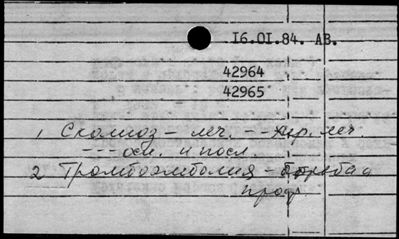 16.01.84. АВ.
42964
42965
1 Сколиоз - леч. --- хир. леч.
--- осл. и посл.
2 Тромбоэмболия - борьба с
проф.